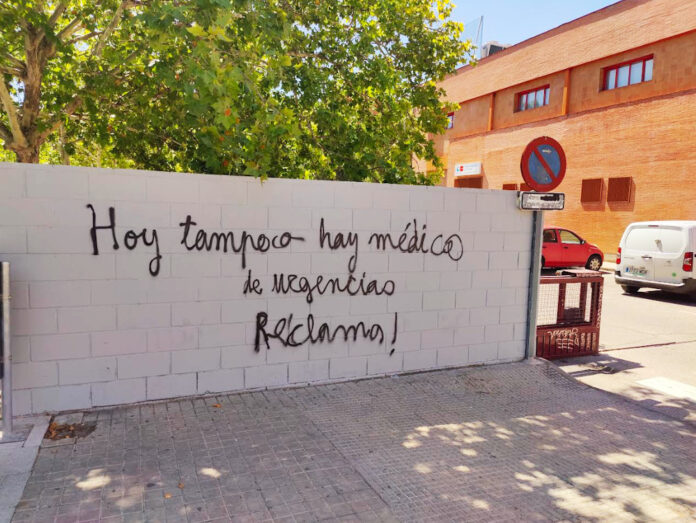 Hoy tampoco hay médico
de urgencias
Reclama!